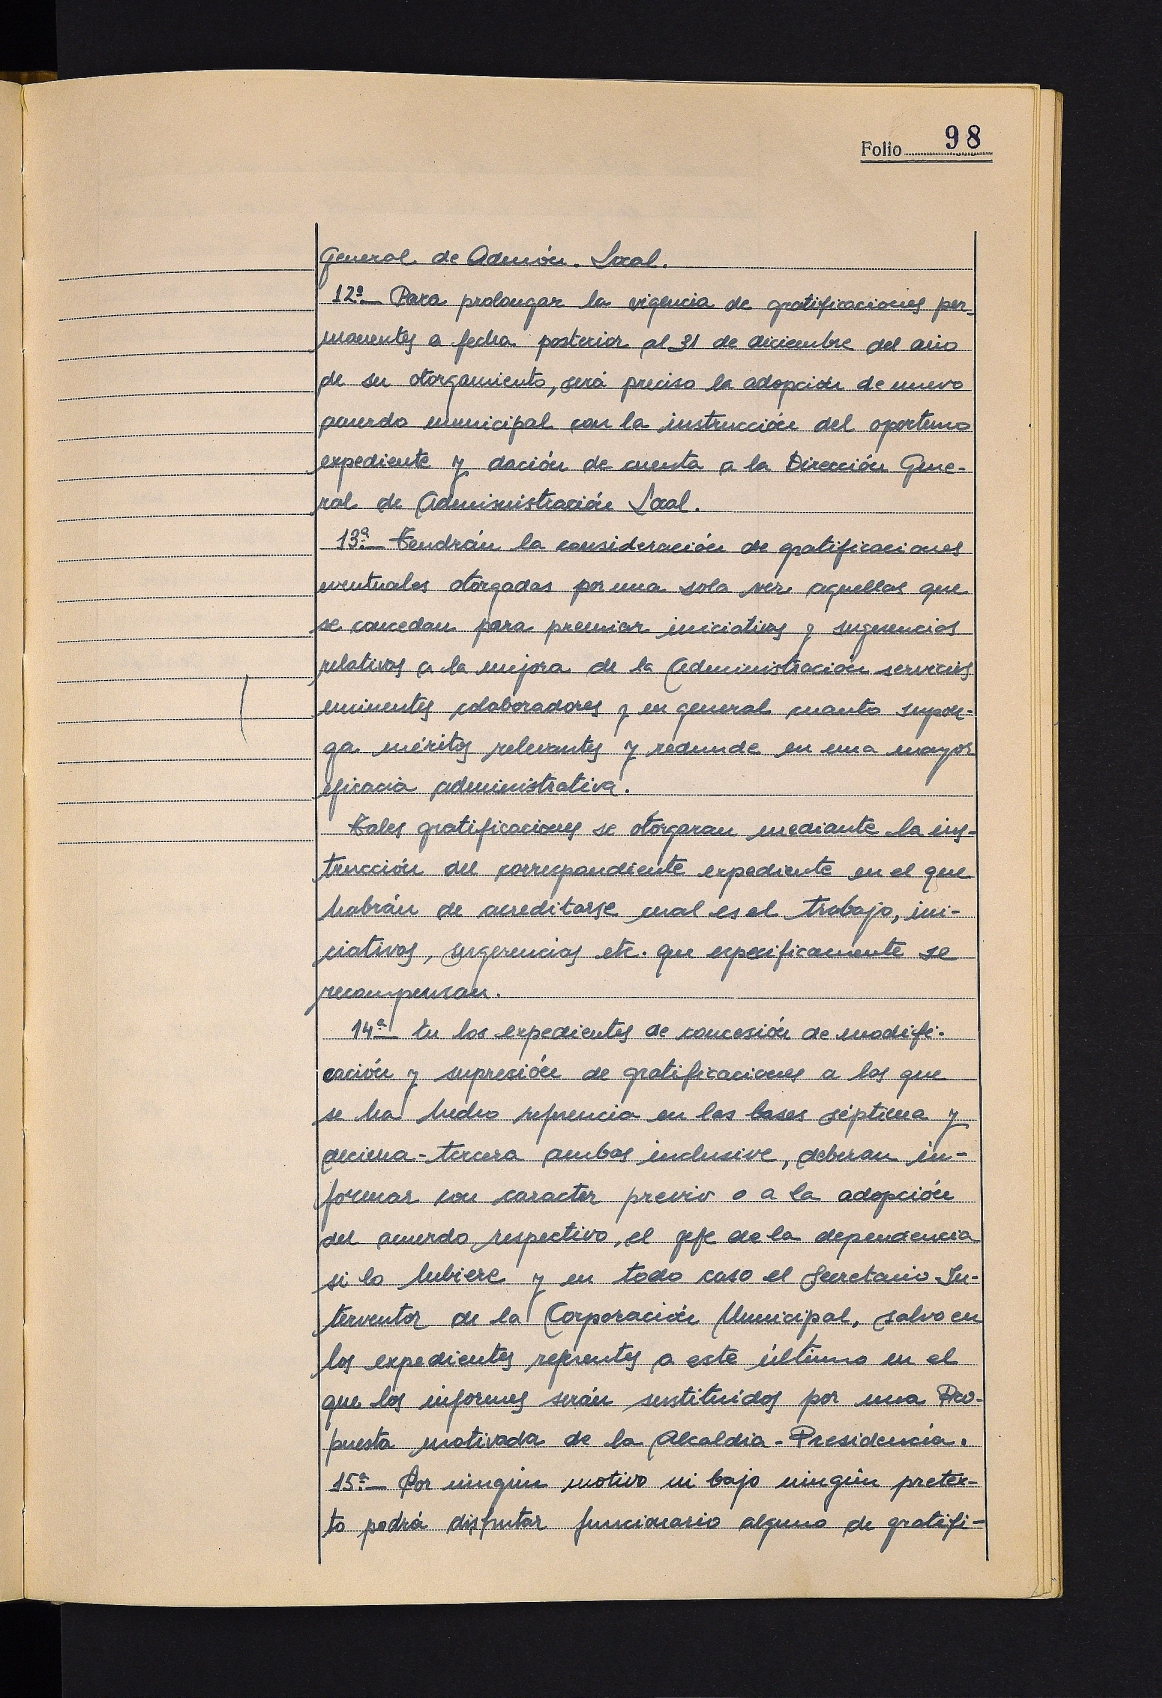 Folio 98
General de Admón. Local.
12ª— Para prolongar la vigencia de gratificaciones per-
manentes a fecha posterior al 31 de diciembre del año
de su otorgamiento, será preciso la adopción de nuevo
acuerdo municipal con la instrucción del oportuno
expediente y dación de cuenta a la Dirección Gene-
ral de Administración Local.
13ª— Tendrán la consideración de gratificaciones
eventuales otorgadas por una sola vez aquellas que
se concedan para premiar iniciativas y sugerencias
relativas a la mejora de la Administración servicios
eminentes colaboradores y en general cuanto supon-
ga méritos relevantes y redunde en una mayor
eficacia administrativa.
Tales gratificaciones se otorgaran mediante la ins-
trucción del correspondiente expediente en el que
habrán de acreditarse cual es el trabajo, ini-
ciativas, sugerencias etc. que especificamente se
recompensan.
14ª— En los expedientes de concesión de modifi-
cación y supresión de gratificaciones a los que
se ha hecho referencia en las bases séptima y
decima-tercera ambas inclusive, deberan in-
formar con caracter previo o a la adopción
del acuerdo respectivo, el gefe de la dependencia
si lo hubiere y en todo caso el Secretario-In-
terventor de la Corporación Municipal, salvo en
los expedientes referentes a este último en el
que los informes serán sustituidos por una Pro-
puesta motivada de la Alcaldia-Presidencia.
15ª— Por ningún motivo ni bajo ningún pretex-
to podrá disfrutar funcionario alguno de gratifi-